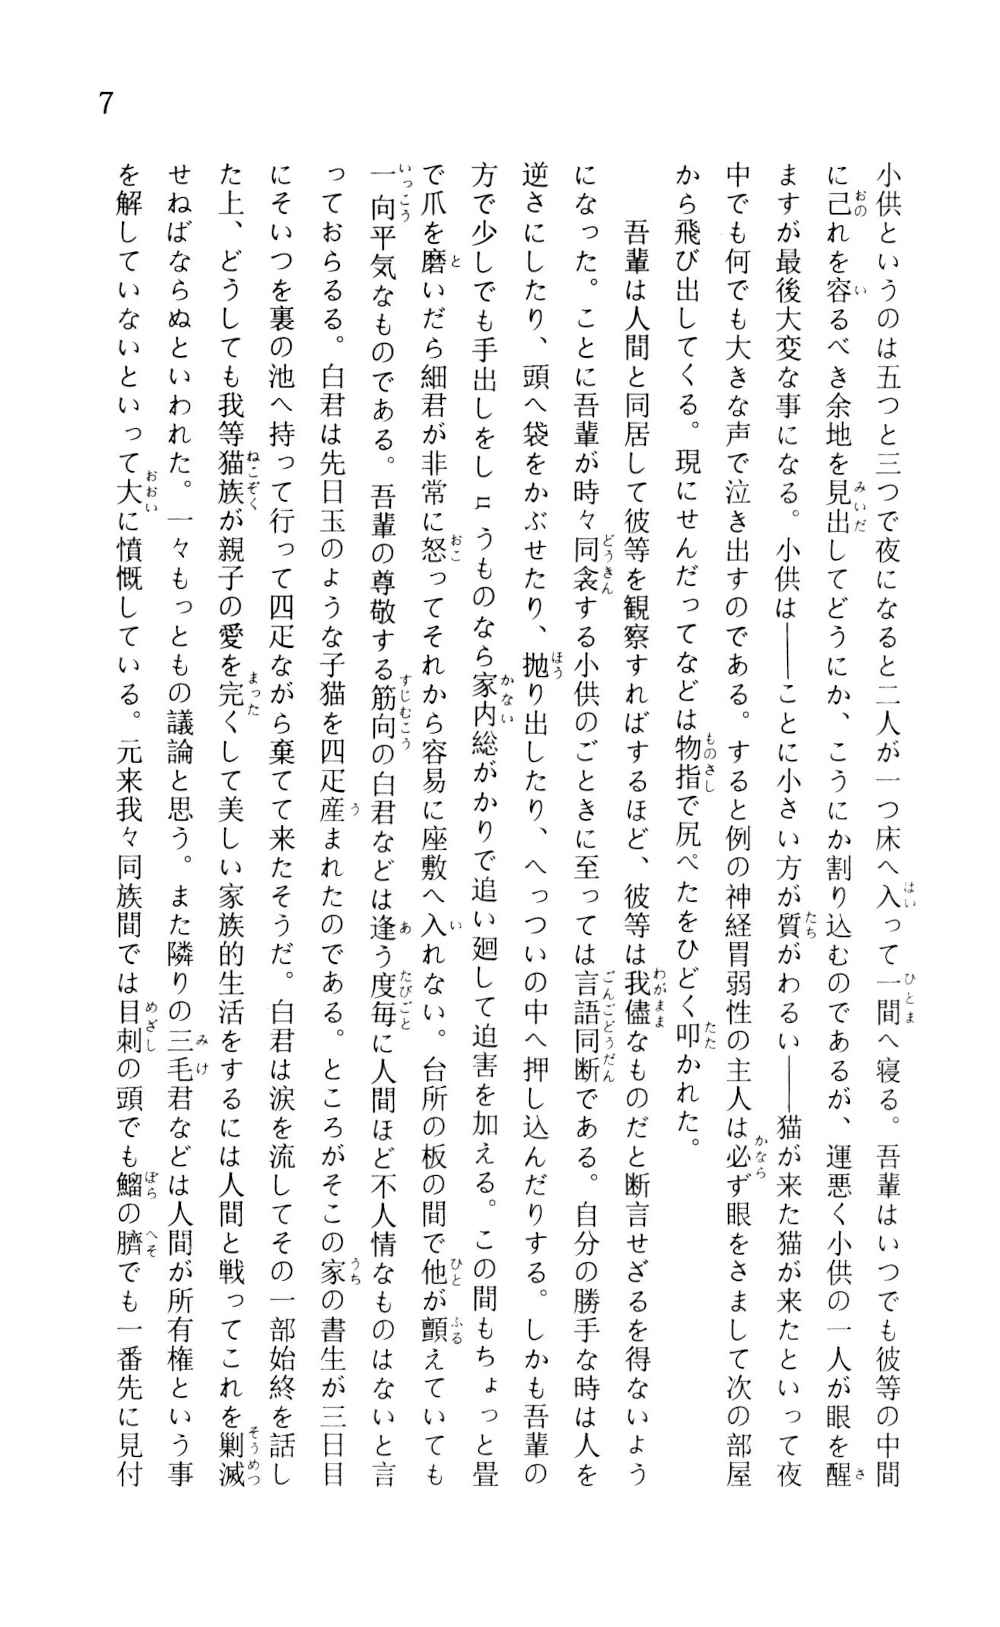 7
小供というのは五つと三つで夜になると二人が一つ床へ入って一間へ寝る。吾輩はいつでも彼等の中間
に己れを容るべき余地を見出してどうにか、こうにか割り込むのであるが、運悪く小供の一人が眼を醒
ますが最後大変な事になる。小供は――ことに小さい方が質がわるい――猫が来た猫が来たといって夜
中でも何でも大きな声で泣き出すのである。すると例の神経胃弱性の主人は必ず眼をさまして次の部屋
から飛び出してくる。現にせんだってなどは物指で尻ぺたをひどく叩かれた。
吾輩は人間と同居して彼等を観察すればするほど、彼等は我儘なものだと断言せざるを得ないよう
になった。ことに吾輩が時々同衾する小供のごときに至っては言語同断である。自分の勝手な時は人を
逆さにしたり、頭へ袋をかぶせたり、抛り出したり、へっついの中へ押し込んだりする。しかも吾輩の
方で少しでも手出しをしょうものなら家内総がかりで追い廻して迫害を加える。この間もちょっと畳
で爪を磨いだら細君が非常に怒ってそれから容易に座敷へ入れない。台所の板の間で他が顫えていても
一向平気なものである。吾輩の尊敬する筋向の白君などは逢う度毎に人間ほど不人情なものはないと言
っておらるる。白君は先日玉のような子猫を四疋産まれたのである。ところがそこの家の書生が三日目
にそいつを裏の池へ持って行って四疋ながら棄てて来たそうだ。白君は涙を流してその一部始終を話し
た上、どうしても我等猫族が親子の愛を完くして美しい家族的生活をするには人間と戦ってこれを剿滅
せねばならぬといわれた。一々もっともの議論と思う。また隣りの三毛君などは人間が所有権という事
を解していないといって大に憤慨している。元来我々同族間では目刺の頭でも鰡の臍でも一番先に見付